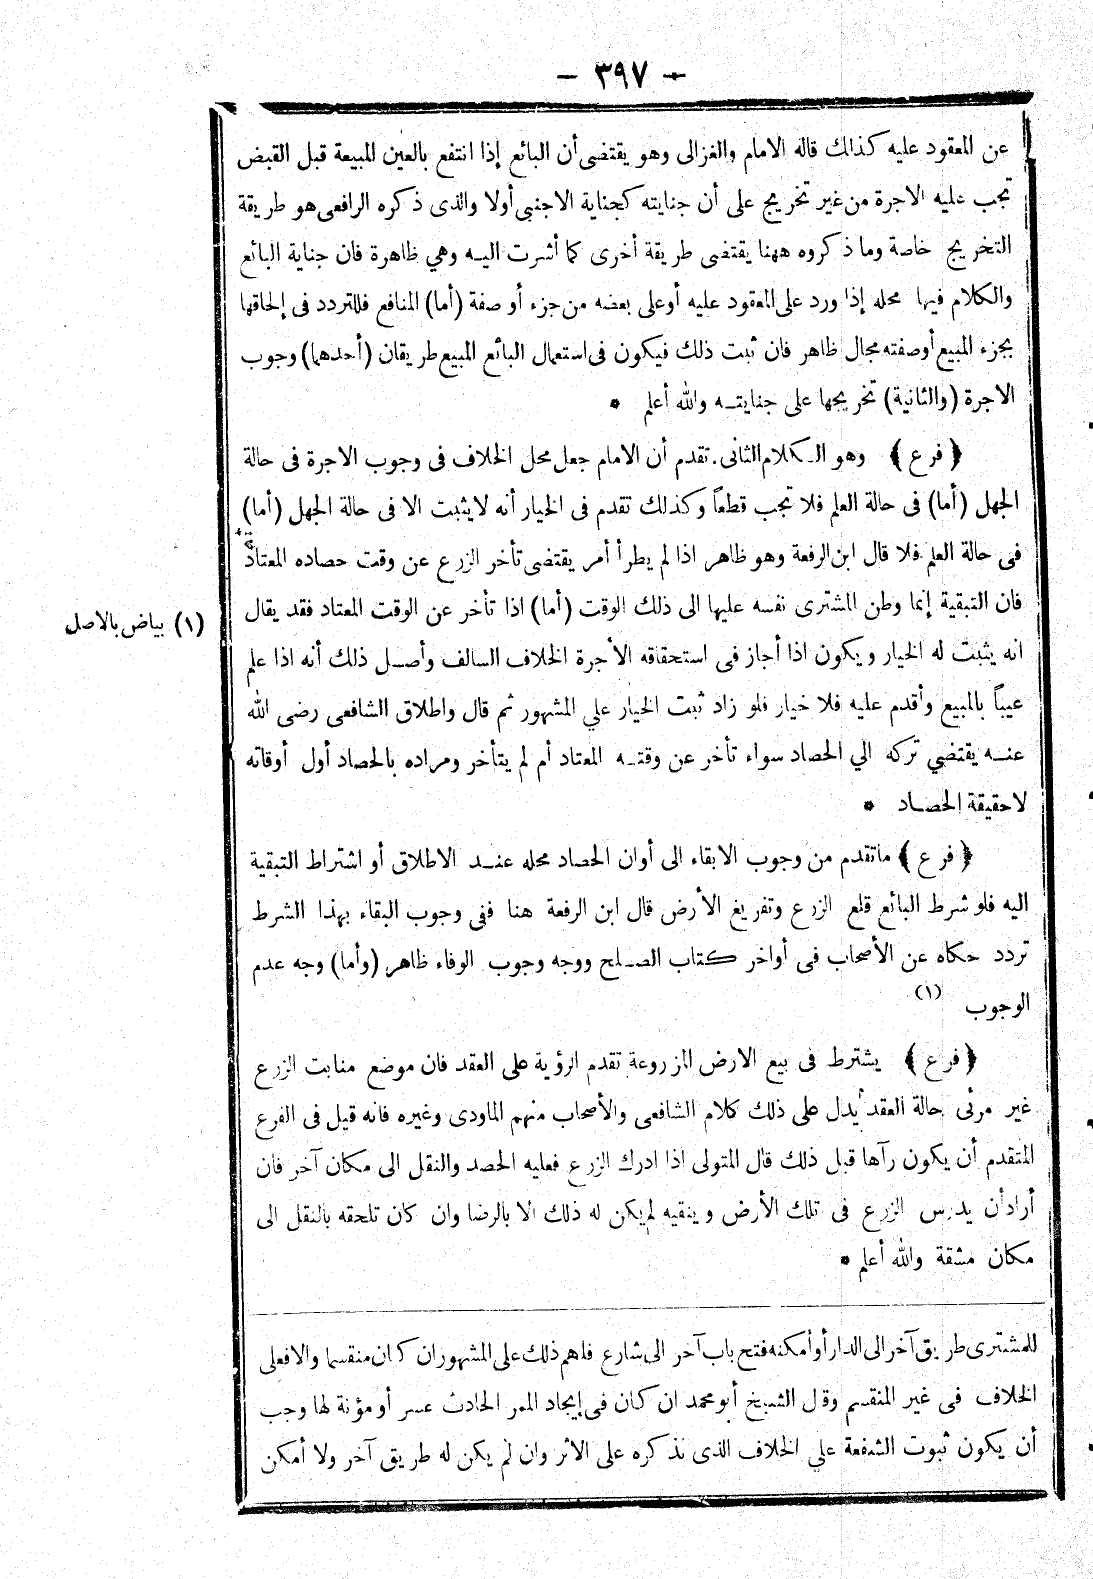 - ٣٩٧ -
عن المعقود عليه كذلك قاله الامام والغزالى وهو يقتضى أن البائع إذا انتفع بالعين المبيعة قبل القبض
تجب عليه الاجرة من غير تخريج على أن جنايته كجناية الاجنبى أولا والذى ذكره الرافعى هو طريقة
التخريج خاصة وما ذكروه ههنا يقتضى طريقة أخرى كما أشرت اليه وهي ظاهرة فان جناية البائع
والكلام فيها محله إذا ورد على المعقود عليه أوعلى بعضه من جزء أو صفة (أما) المنافع فللتردد فى إلحاقها
بجزء المبيع أوصفته مجال ظاهر فان ثبت ذلك فيكون فى استعمال البائع المبيع طريقان (أحدهما) وجوب
الاجرة (والثانية) تخريجها على جنايته والله أعلم *
﴿فرع﴾ وهو الكلام الثانى. تقدم أن الامام جعل محل الخلاف فى وجوب الاجرة فى حالة
الجهل (أما) فى حالة العلم فلا تجب قطعاً وكذلك تقدم فى الخيار أنه لا يثبت الا فى حالة الجهل (أما)
فى حالة العلم فلا قال ابن الرفعة وهو ظاهر اذا لم يطرأ أمر يقتضى تأخر الزرع عن وقت حصاده المعتاد
فان التبقية إنما وطن المشترى نفسه عليها الى ذلك الوقت (أما) اذا تأخر عن الوقت المعتاد فقد يقال
(١) بياض بالاصل
انه يثبت له الخيار ويكون اذا أجاز فى استحقاقه الأجرة الخلاف السالف وأصل ذلك أنه اذا علم
عيباً بالمبيع وأقدم عليه فلا خيار فلو زاد ثبت الخيار علي المشهور ثم قال واطلاق الشافعى رضى الله
عنه يقتضي تركه الي الحصاد سواء تأخر عن وقته المعتاد أم لم يتأخر ومراده بالحصاد أول أوقاته
لاحقيقة الحصاد *
﴿فرع﴾ ماتقدم من وجوب الابقاء الى أوان الحصاد محله عند الاطلاق أو اشتراط التبقية
اليه فلو شرط البائع قلع الزرع وتفريغ الأرض قال ابن الرفعة هنا ففى وجوب البقاء بهذا الشرط
تردد حكاه عن الأصحاب فى أواخر كتاب الصلح ووجه وجوب الوفاء ظاهر (وأما) وجه عدم
الوجوب (١)
﴿فرع﴾ يشترط فى بيع الارض المزروعة تقدم الرؤية على العقد فان موضع منابت الزرع
غير مرئى حالة العقد يدل على ذلك كلام الشافعى والأصحاب منهم الماودى وغيره فانه قيل فى الفرع
المتقدم أن يكون رآها قبل ذلك قال المتولى اذا ادرك الزرع فعليه الحصد والنقل الى مكان آخر فان
أراد أن يدرس الزرع فى تلك الأرض وينقيه لم يكن له ذلك الا بالرضا وان كان تلحقه بالنقل الى
مكان مشقة والله أعلم *
للمشترى طريق آخر الى الدار أو أمكنه فتح باب آخر الى شارع فلهم ذلك على المشهور ان كان منقسما والافعلى
الخلاف فى غير المنقسم وقال الشيخ أبو محمد ان كان فى إيجاد الممر الحادث عسر أو مؤنة لها وجب
أن يكون ثبوت الشفعة علي الخلاف الذى نذكره على الاثر وان لم يكن له طريق آخر ولا أمكن